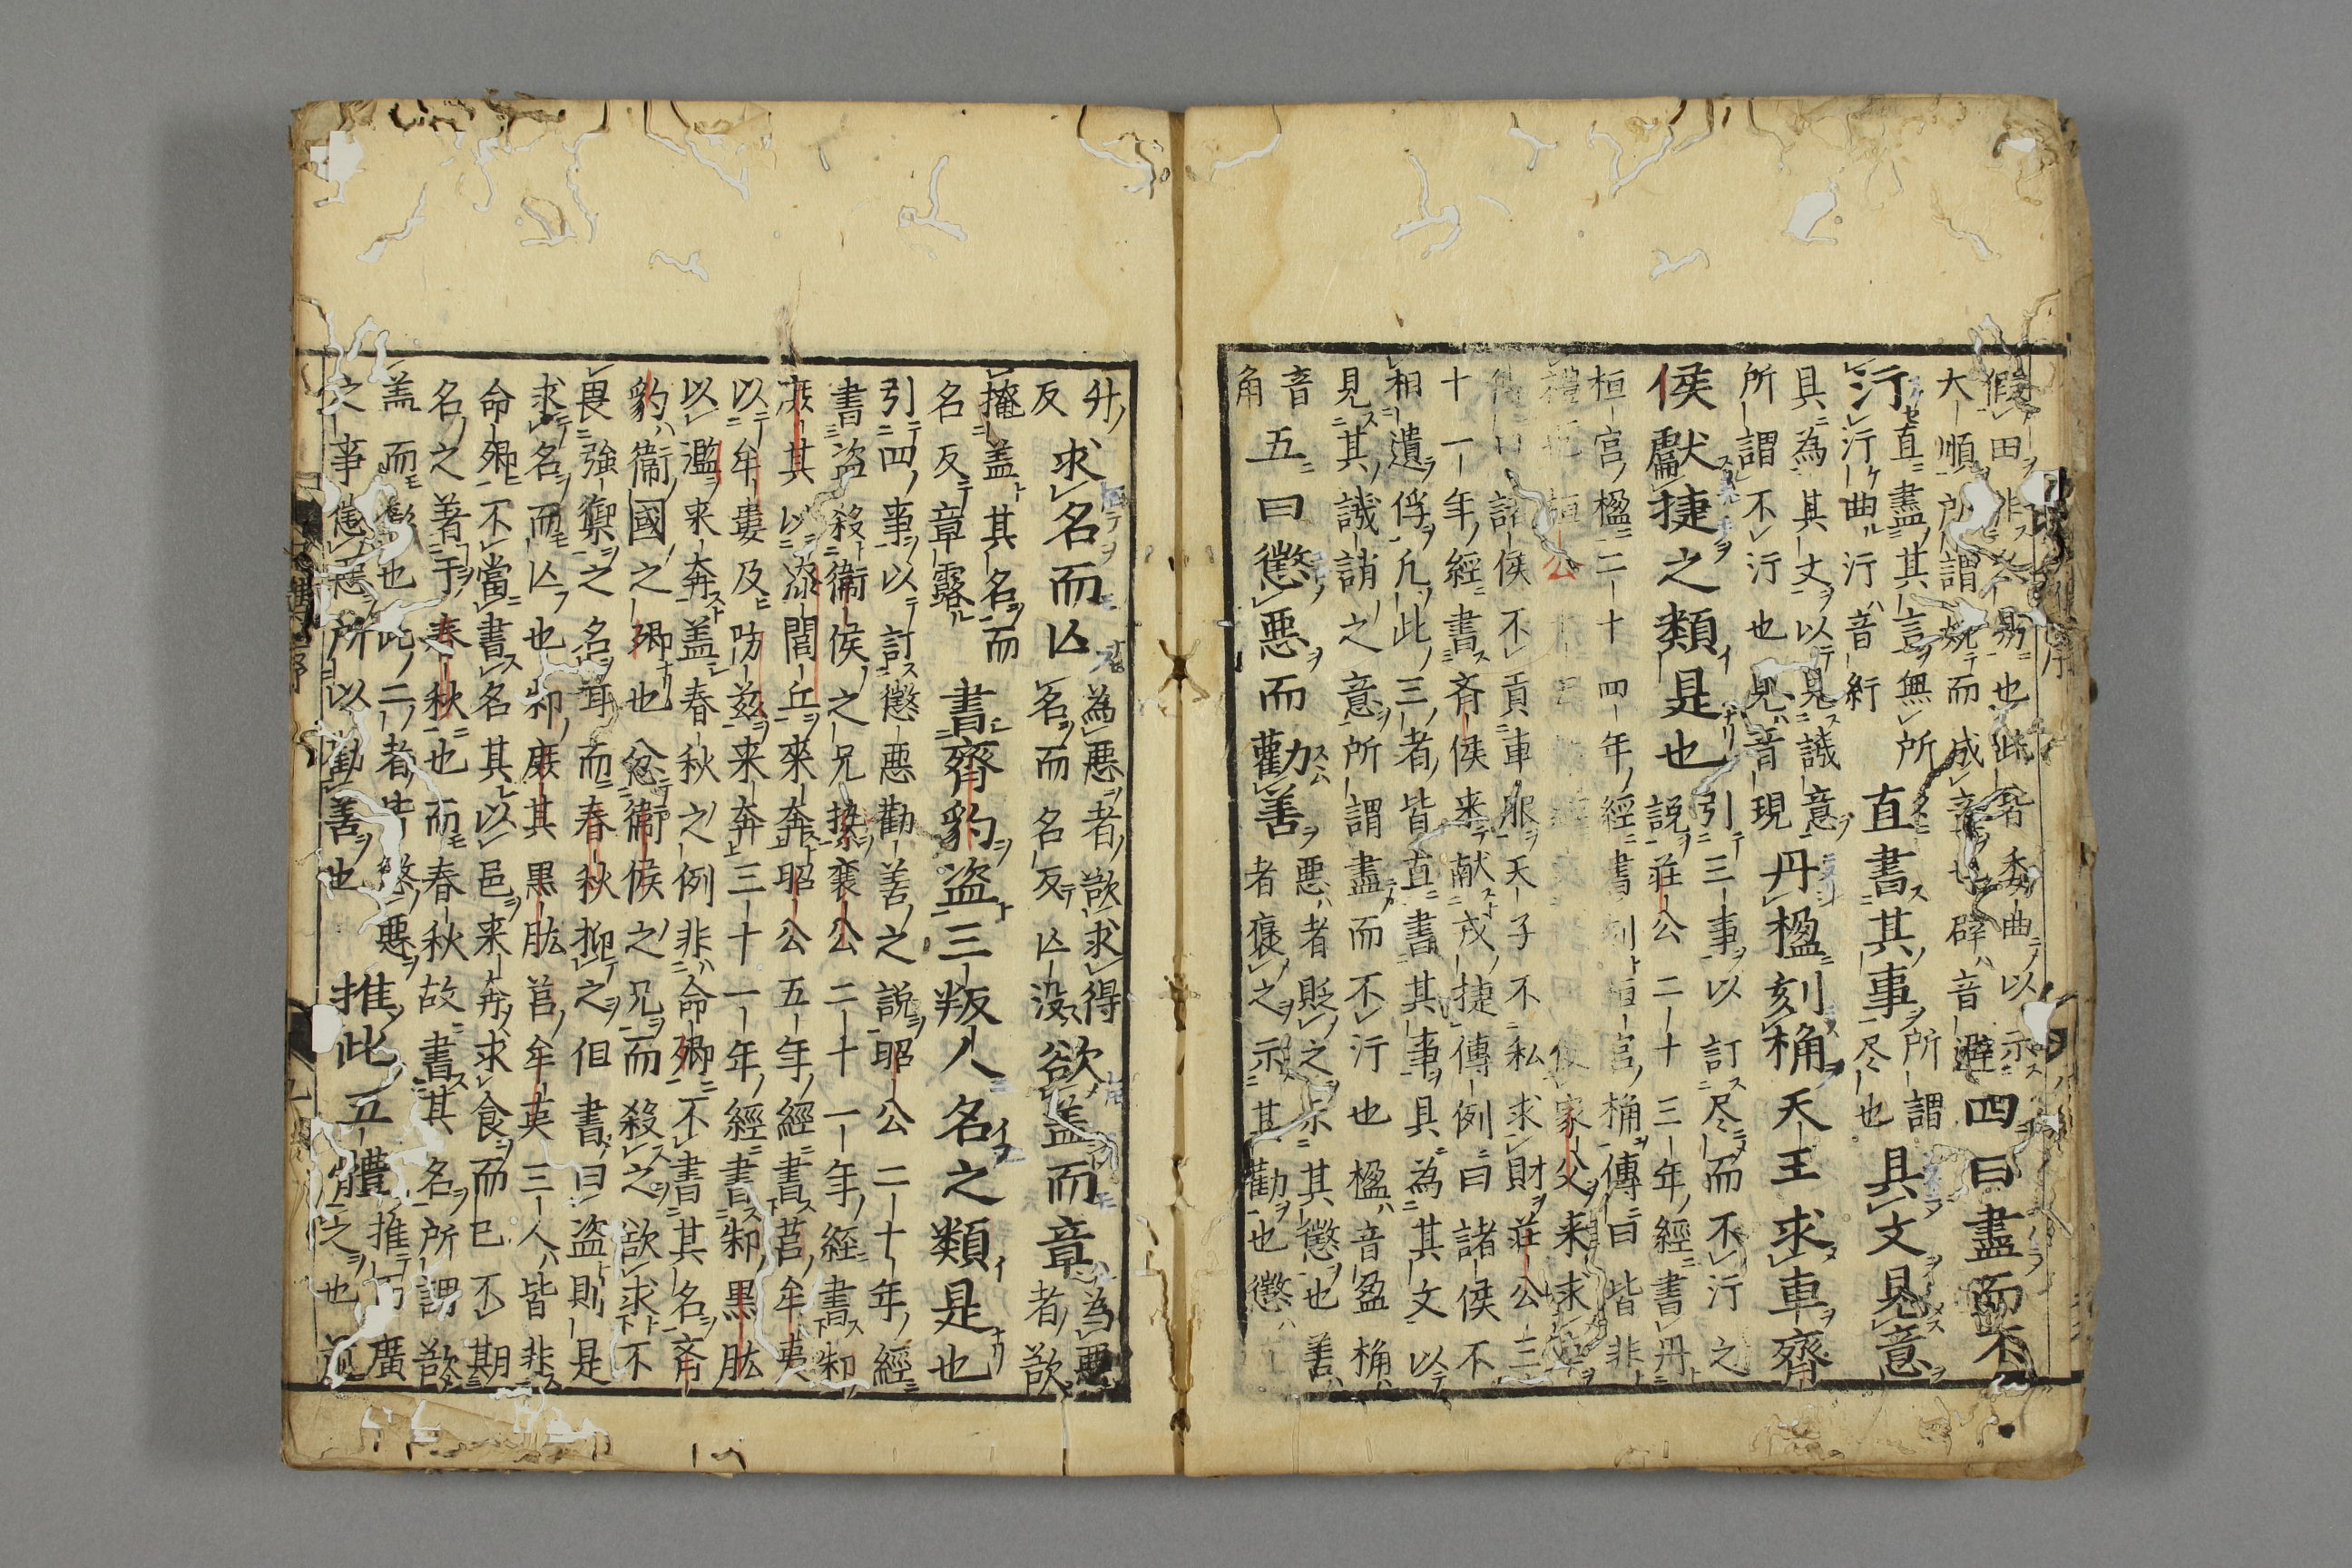 假田非久易也此皆委曲以示
大順所謂婉而成章也辟音避
四曰盡而不
汙
直盡其言無所
汙曲汙音紆
直書其事
所謂
尽也
具文見意
具為其文以見譏意
所謂不汙也見音現
丹楹刻桷天王求車齊
侯獻捷之類是也
引三事以訂尽而不汙之
說莊公二十三年經書丹
桓宮楹二十四年經書刻桓宮桷傳曰皆非
禮也桓公 使家父来求車
傳曰諸侯不貢車服天子不私求財莊公三
十一年經書斉侯来献戎捷傳例曰諸侯不
相遺俘凢此三者皆直書其事具為其文以
見其譏誚之意所謂盡而不汙也楹音盈桷
音
角
五曰懲惡而勸善
悪者貶之示其懲也善
者褒之示其勸也懲
升
反
求名而亾
為悪者欲求得
名而名反亾没
欲盖而章
為悪
者欲
掩盖其名而
名反章露
書齊豹盗三叛人名之類是也
引四事以訂懲悪勸善之說昭公二十年經
書盗殺衛侯之兄縶襄公二十一年經書邾
庶其以漆閭丘來奔昭公五年經書莒牟夷
以牟婁及防茲来奔三十一年經書邾黒肱
以濫来奔盖春秋之例非命卿不書其名斉
豹衛國之卿也忿衛侯之兄而殺之欲求不
畏強禦之名耳而春秋抑之但書曰盗則是
求名而亾也邾庶其黒肱莒牟夷三人皆非
命卿不當書名其以邑来奔求食而已不期
名之著于春秋也而春秋故書其名所謂欲
盖而彰也此二者皆懲悪
之事懲 所以勸善也
推此五體
推而廣
之也